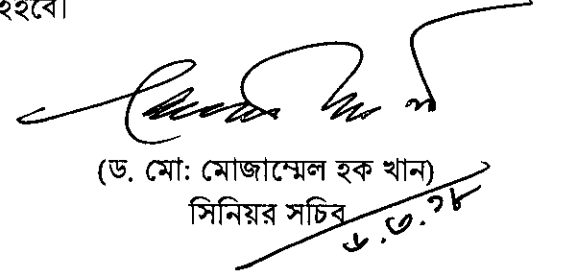 হইবে।
(ড. মো: মোজাম্মেল হক খান)
সিনিয়র সচিব
৬.৩.১৮